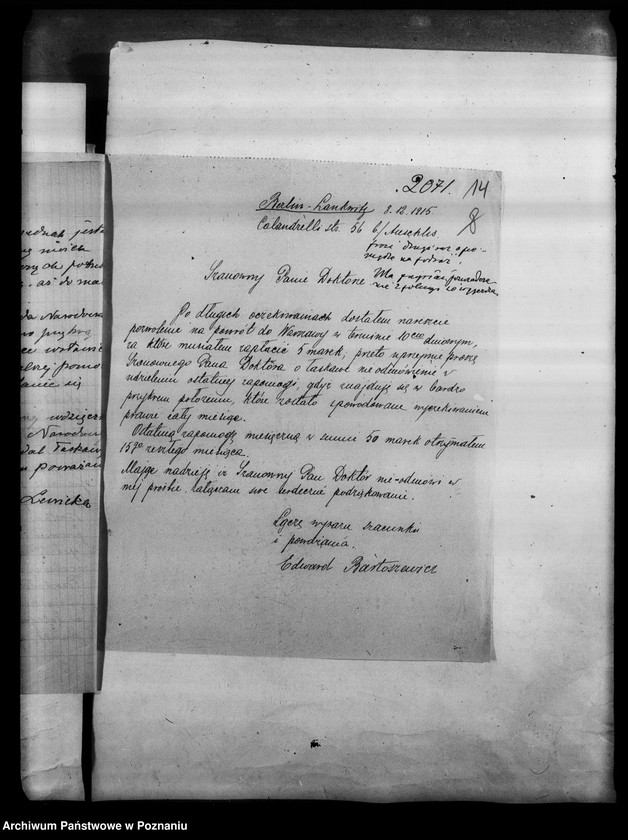 2071. 14
Berlin-Lankwitz 8.12.1915
8
Calandrelli str. 56 b/ Auschlis.
prosi drugi raz o po-
na podróż!
Szanowny Panie Doktorze
Ma paprian
nie
Po długich oczekiwaniach dostałem nareszcie
pozwolenie na powrót do Warszawy w terminie 10cio dniowym,
za które musiałem zapłacić 5 marek, przeto uprzejmie proszę
Szanownego Pana Doktora o łaskawe nieodmówienie w
udzieleniu ostatniej zapomogi, gdyż znajduję się w bardzo
przykrem położeniu, które zostało spowodowane wyczekiwaniem
prawie cały miesiąc.
Ostatnią zapomogę miesięczną w sumie 50 marek otrzymałem
15go zeszłego miesiąca.
Mając nadzieję iż Szanowny Pan Doktór nie odmówi w
mej prośbie załączam swe serdeczne podziękowanie.
Łączę wyrazy szacunku
i poważania.
Edward Bartoszewicz
jednak jeste
nie
as do
da Narodowe
pomo
się
wdzięcz
Narodow
łaskaw
poważan
Lewicka
Archiwum Państwowe w Poznaniu